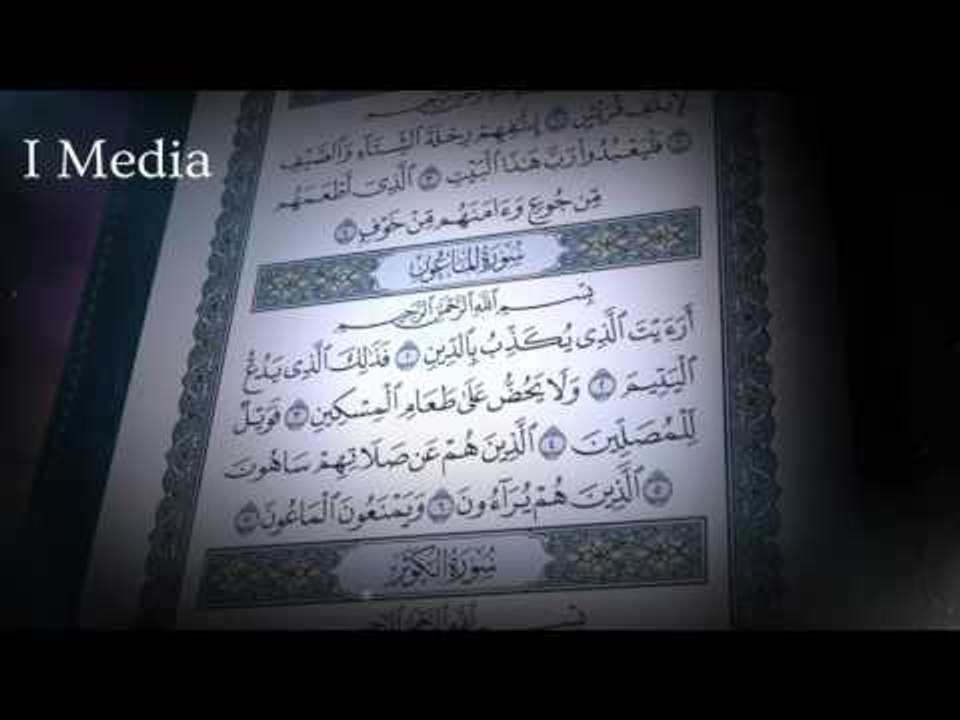 I Media
لِإِيلَٰفِ قُرَيْشٍ ١ إِۦلَٰفِهِمْ رِحْلَةَ ٱلشِّتَآءِ وَٱلصَّيْفِ
٢ فَلْيَعْبُدُوا۟ رَبَّ هَٰذَا ٱلْبَيْتِ ٣ ٱلَّذِىٓ أَطْعَمَهُم
مِّن جُوعٍ وَءَامَنَهُم مِّنْ خَوْفٍۭ ٤
سُورَةُ المَاعُونِ
بِسْمِ ٱللَّهِ ٱلرَّحْمَٰنِ ٱلرَّحِيمِ
أَرَءَيْتَ ٱلَّذِى يُكَذِّبُ بِٱلدِّينِ ١ فَذَٰلِكَ ٱلَّذِى يَدُعُّ
ٱلْيَتِيمَ ٢ وَلَا يَحُضُّ عَلَىٰ طَعَامِ ٱلْمِسْكِينِ ٣ فَوَيْلٌ
لِّلْمُصَلِّينَ ٤ ٱلَّذِينَ هُمْ عَن صَلَاتِهِمْ سَاهُونَ
٥ ٱلَّذِينَ هُمْ يُرَآءُونَ ٦ وَيَمْنَعُونَ ٱلْمَاعُونَ ٧
سُورَةُ الكَوْثَرِ
بِسْمِ ٱللَّهِ ٱلرَّحْمَٰنِ